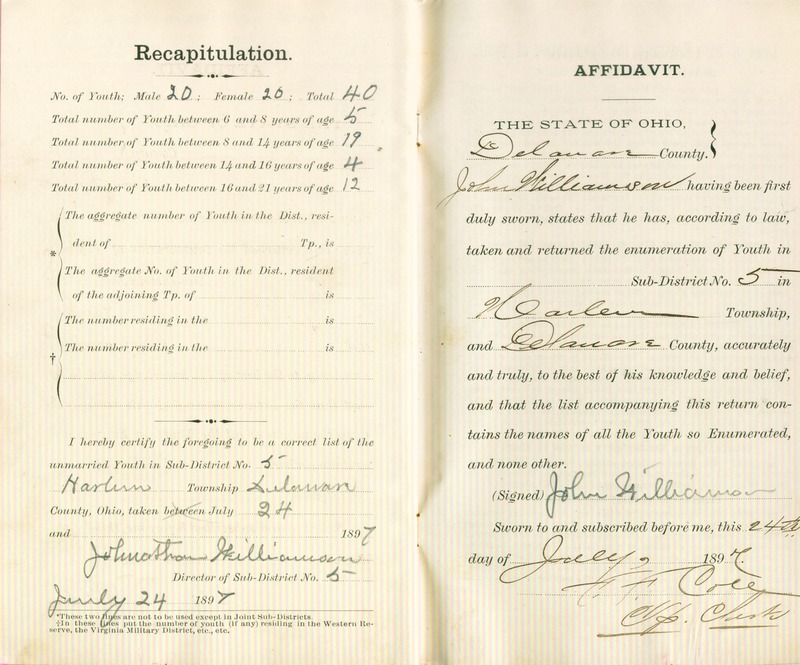 Recapitulation.
No. of Youth; Male 20; Female 20; Total 40
Total number of Youth between 6 and 8 years of age 5
Total number of Youth between 8 and 14 years of age 19
Total number of Youth between 14 and 16 years of age 4
Total number of Youth between 16 and 21 years of age 12
The aggregate number of Youth in the Dist., resi-
dent of Tp., is
*
The aggregate No. of Youth in the Dist., resident
of the adjoining Tp. of is
The number residing in the is
†
The number residing in the is
I hereby certify the foregoing to be a correct list of the
unmarried Youth in Sub-District No. 5
Harlem Township Delaware
County, Ohio, taken between July 24
and 1897
Johnathan Williamson
Director of Sub-District No. 5
July 24 1897
*These two lines are not to be used except in Joint Sub-Districts.
†In these lines put the number of youth (if any) residing in the Western Re-
serve, the Virginia Military District, etc., etc.
AFFIDAVIT.
THE STATE OF OHIO,
Delaware County.
John Williamson having been first
duly sworn, states that he has, according to law,
taken and returned the enumeration of Youth in
Sub-District No. 5 in
Harlem Township,
and Delaware County, accurately
and truly, to the best of his knowledge and belief,
and that the list accompanying this return con-
tains the names of all the Youth so Enumerated,
and none other.
(Signed) John Williamson
Sworn to and subscribed before me, this 24th
day of July 1897.
Cole
Clerk